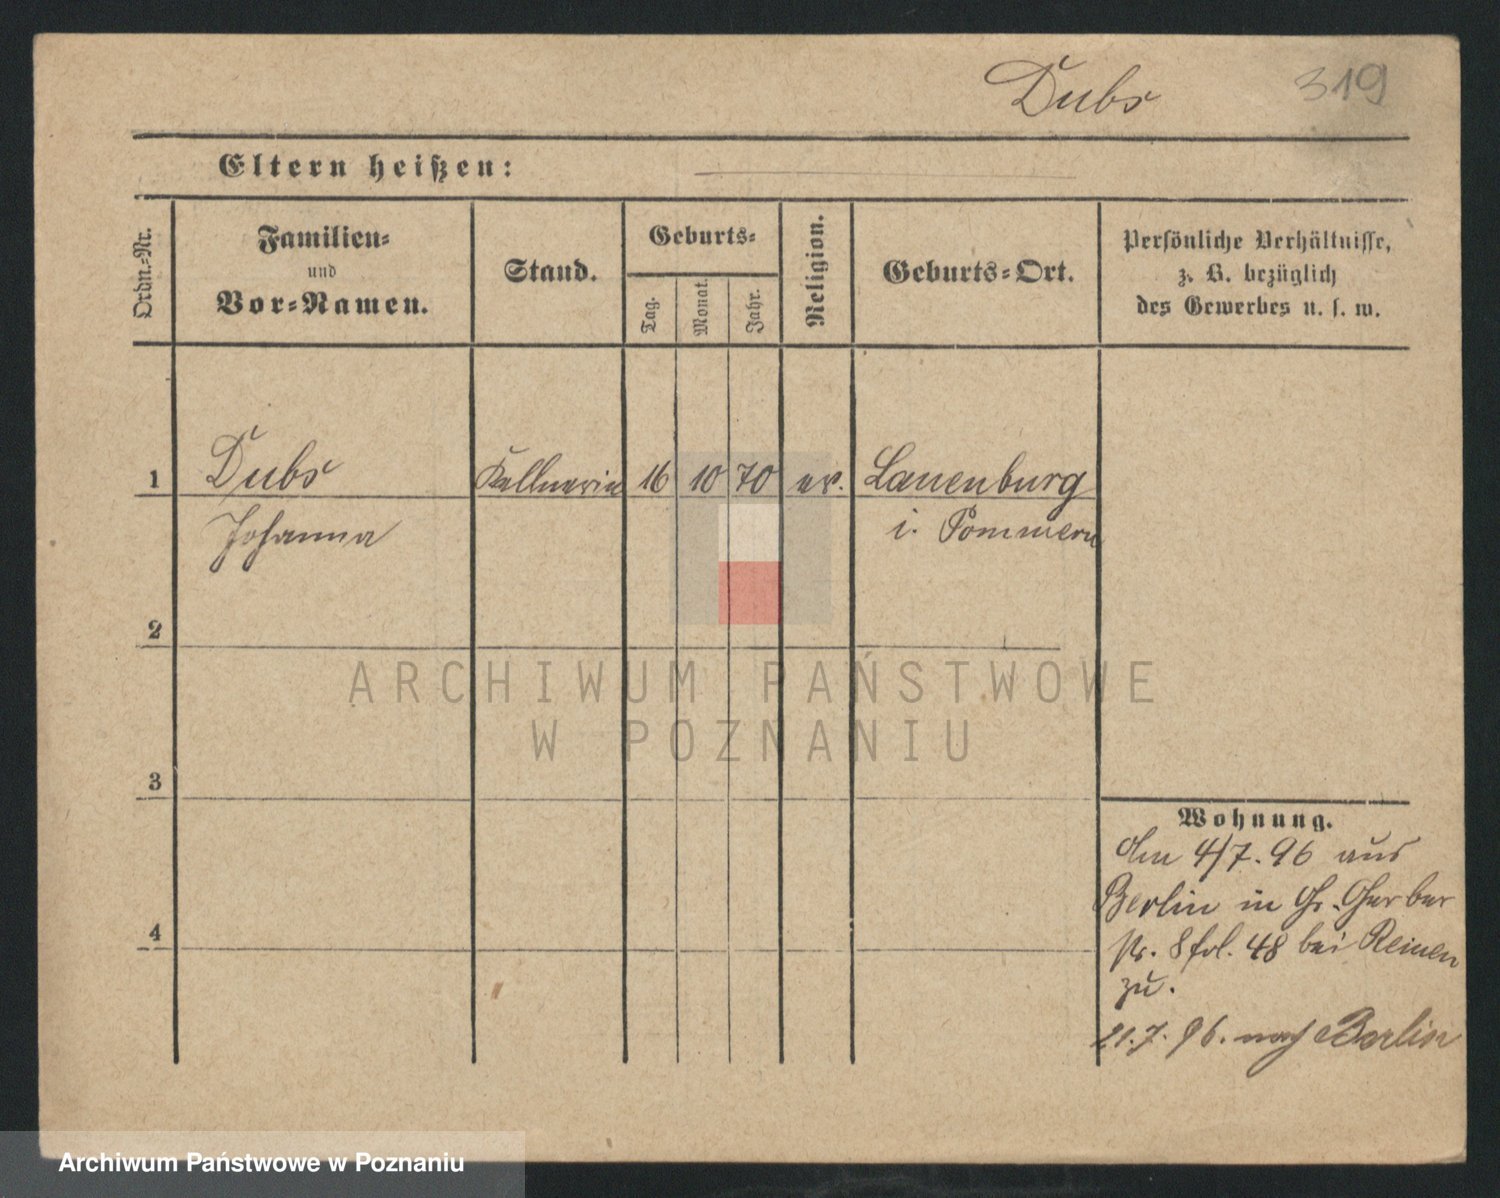 Dubs 319
Eltern heißen:
Ordn.-Nr.
Familien-
und
Vor-Namen.
Stand.
Geburts-
Tag.
Monat.
Jahr.
Religion.
Geburts-Ort.
Persönliche Verhältnisse,
z. B. bezüglich
des Gewerbes u. s. w.
1 Dubs Kellnerin 16 10 70 ev. Lauenburg
Johanna i. Pommern
2
3
4
Wohnung.
Am 4/7. 96 aus
Berlin in Gr. Gerber
str. 8 fol. 48 bei
zu.
21.7.96. nach Berlin
ARCHIWUM PAŃSTWOWE
W POZNANIU
Archiwum Państwowe w Poznaniu